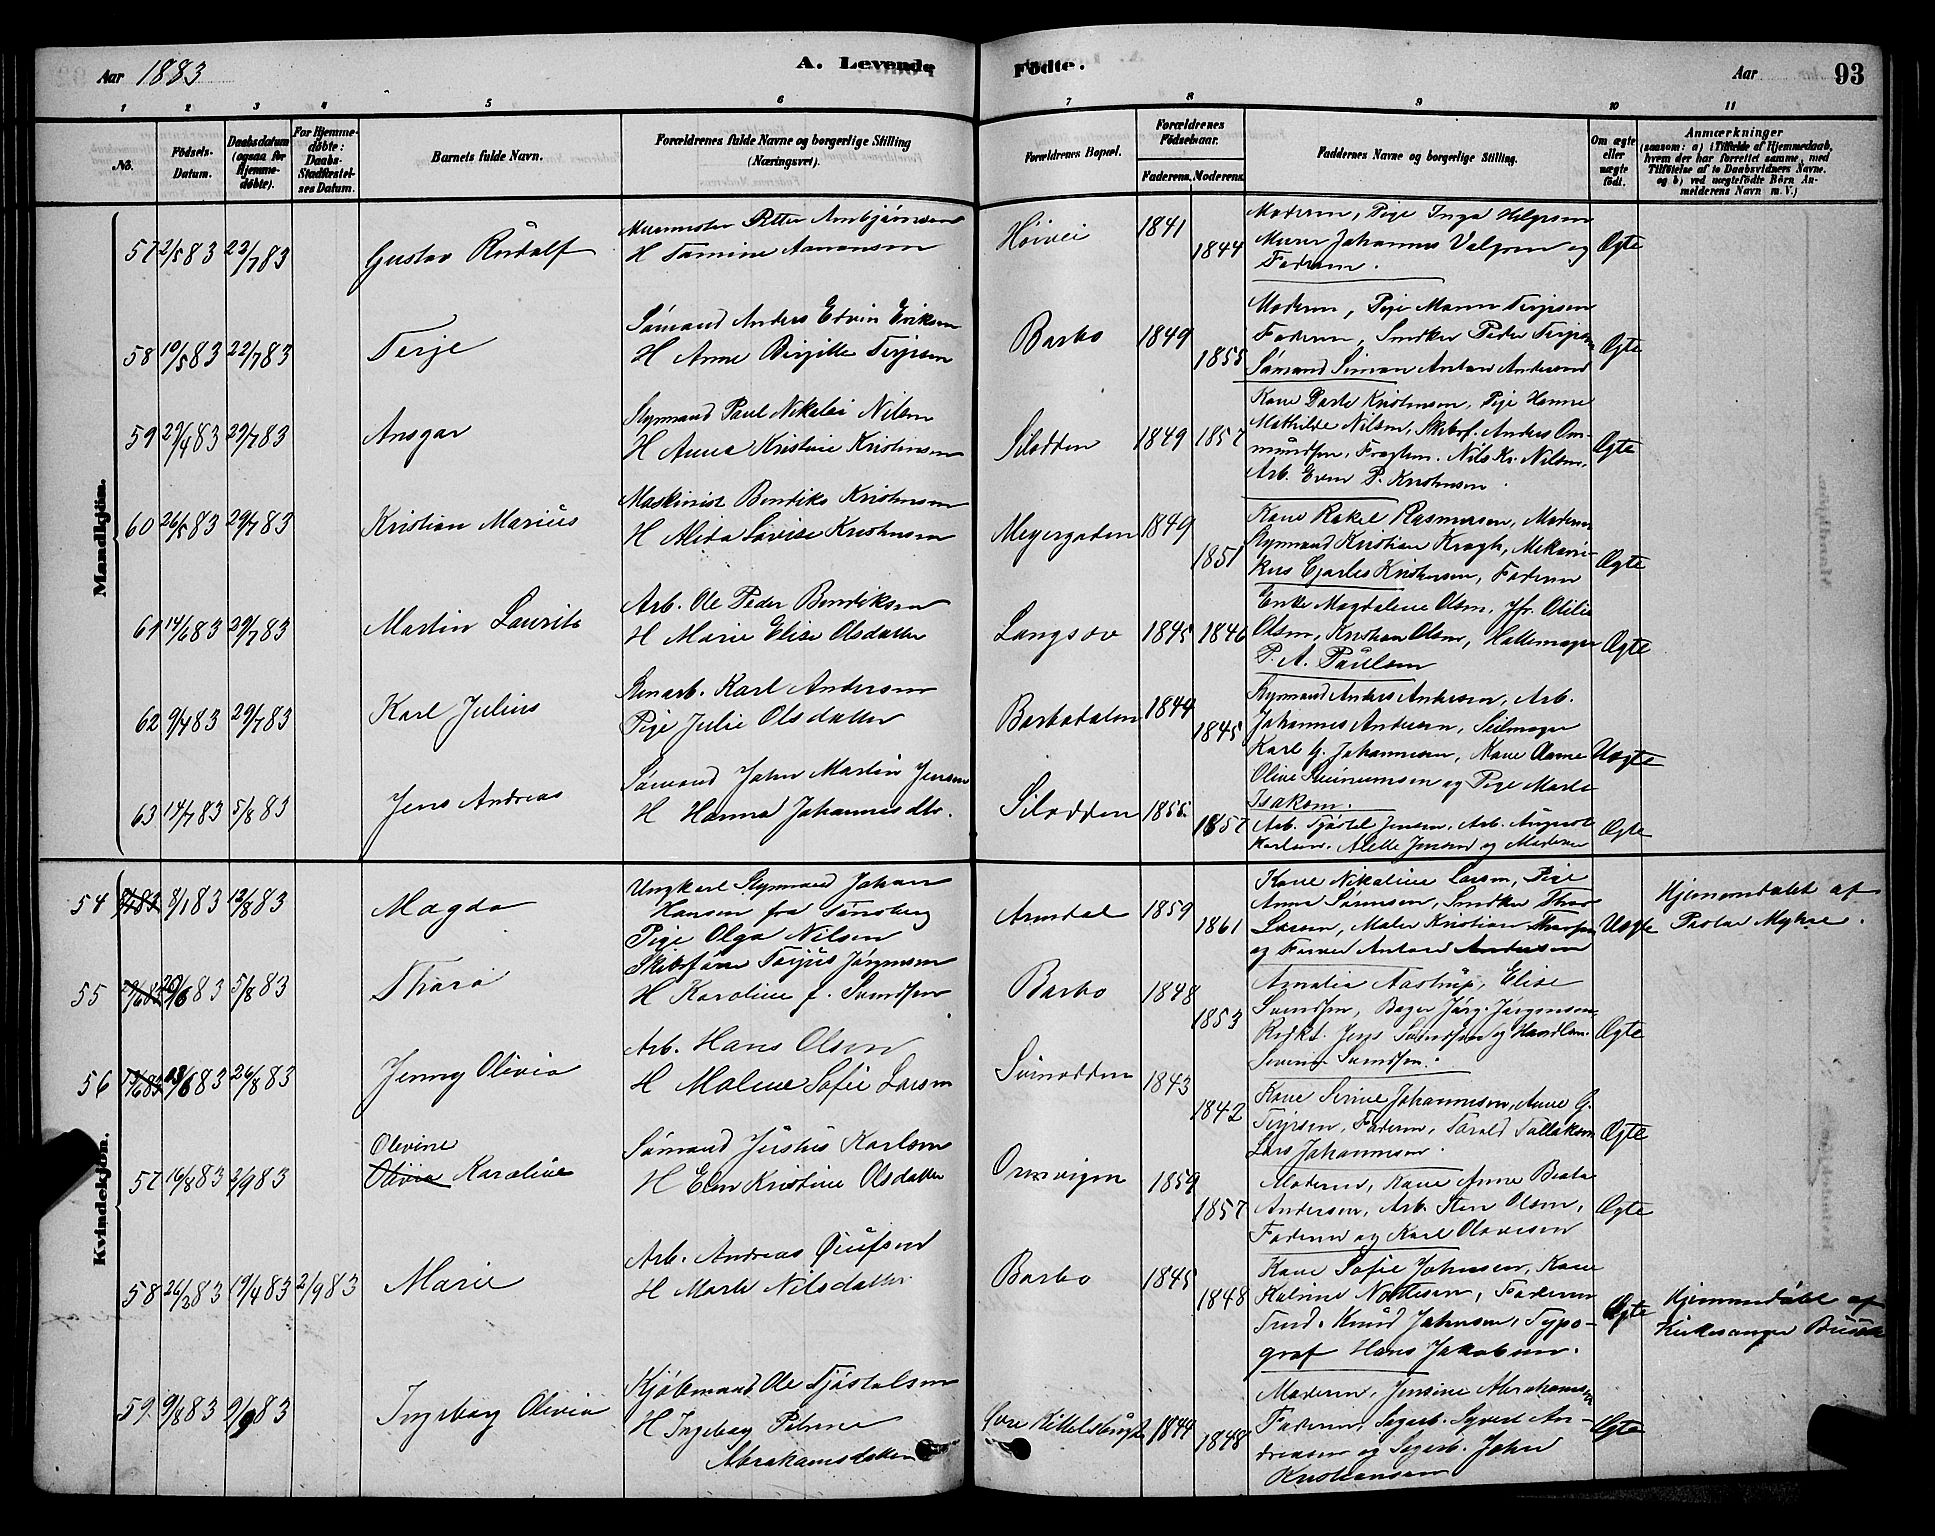 Aar 1883
A. Levende
Fødte.
Aar
93
1 2 3 4 5 6 7 8 9 10 11
No.
Fødsels-
Datum.
Daabsdatum
(ogsaa for
Hjemme-
døbte).
For Hjemme-
døbte:
Daabs-
Stadfæstel-
ses Datum.
Barnets fulde Navn.
Forældrenes fulde Navne og borgerlige Stilling
(Næringsvei).
Forældrenes Bopæl.
Forældrenes
Fødselsaar.
Faderens. Moderens.
Faddernes Navne og borgerlige Stilling.
Om ægte
eller
uægte
født.
Anmærkninger
(saasom: a) i Tilfælde af Hjemmedaab,
hvem der har forrettet samme, med
Tilføielse af to Daabsvidners Navne.
og b) ved uægtefødte Børn An-
melderens Navn m. V.)
Mandkjøn.
57 2/5 83 22/7 83
Gustav Rudolf
Murmester Petter Ambjørnsen
H Tomine Aanonsen
Høivei
1841
1844
Moderen, Pige Inga Helgesen
Murer Johannes Valgren og
Faderen.
Ægte
58 10/5 83 22/7 83
Terje
Sømand Anders Edvin Eriksen
H Anne Birgitte Terjesen
Barbo
1849
1855
Moderen, Pige Maren Terjesen
Faderen, Snedker Peder Terjesen
Sømand Simon Anton Andersen
Ægte
59 29/4 83 29/7 83
Ansgar
Styrmand Paul Nikolai Nilsen
H Anna Kristine Kristensen
Silodden
1849 1857
Kone Dorte Kristensen, Pige Hanne
Mathilde Nilsen, Skibsf. Anders Om-
mundsen, Fragtem. Nils Kr. Nilsen,
Arb. Even P. Kristensen.
Ægte
60 26/5 83 29/7 83
Kristian Marius
Maskinist Bendiks Kristensen
H Alida Lovise Kristensen
Meyergaden
1849
1851
Kone Rakel Rasmussen, Moderen
Styrmand Kristian Kragh, Mekani-
kus Charles Kristensen, Faderen
Ægte
61 14/6 83 29/7 83
Martin Laurits
Arb. Ole Peder Bendiksen
H Marie Elise Olsdatter
Langsæv
1845 1846
Enke Magdalene Olsen, Jfr. Otilie
Olsen, Kristian Olsen, Hattemager
P. A. Paulsen
Ægte
62 9/4 83 29/7 83
Karl Julius
Karl Andersen
Pige Julie Olsdatter
Barbodalen
1844
1845
Styrmand Anders Andersen, Arb.
Johannes Andersen, Seilmager
Karl G. Johannesen, Kone Anne
Olive Steinumsen og Pige Marte
Isaksen.
Uægte
63 14/7 83 5/8 83
Jens Andreas
Sømand John Martin Jensen
H Hanna Johannesdtr.
Silodden
1855.
1857
Arb. Tjøstel Jensen, Arb. August
Karlsen, Alette Jensen og Moderen
Ægte
Kvindekjøn.
54 8/1 83 12/8 83
Magda
Ungkarl Styrmand Johan
Hansen fra Tønsberg
Pige Olga Nilsen
Arendal
1859
1861
Kone Nikoline Larsen, Pige
Anne Sørensen, Snedker Thor
Larsen, Maler Kristian Thorsen
og Farver Anton Andersen
Uægte
Hjemmedøbt af
Pastor Myhre.
55 83 5/8 83
Thora
Skibsfører Terjus Jørgensen
H Karoline f. Svendsen
Barbo
1848
1853
Amalia Aastrup, Elise
Svendsen, Bager Jørg. Jørgensen
Jens Svendsen og Handlsm.
Severin Svendsen.
Ægte
56 83 26/8 83
Jenny Olivia
Arb. Hans Olsen
H Maline Sofie Larsen
Svinodden
1843
1842
Kone Serine Johannesen, Anne G.
Terjesen, Faderen, Torald Tallaksen
Lars Johannesen.
Ægte
57 16/8 83 2/9 83
Olevine
Olivia Karoline
Sømand Justus Karlsen
H Elen Kristine Olsdatter
Ormvigen
1859
1857
Moderen, Kone Anne Beata
Andersen, Arb. Sten Olsen,
Faderen og Karl Olavesen
Ægte
58 26/2 83 19/4 83 2/9 83
Marie
Arb. Andreas Øiufsen
H Marte Nilsdatter
Barbo
1845
1848
Kone Sofie Johnsen, Kone
Katrine Nottesen, Faderen
Tred. Knud Johnsen, Typo-
graf Hans Jakobsen.
Ægte
Hjemmedøbt af
Kirkesanger
59. 9/8 83 9/9 83
Ingeborg Olivia
Kjøbmand Ole Tjøstolsen
H Ingeborg Petrine
Abrahamsdatter
Øvre Kittelsbugt
1844
1848
Moderen, Jensine Abrahamsen
Faderen, Sagarb. Syvert An-
dreasen og Sagarb. John
Kristiansen
Ægte